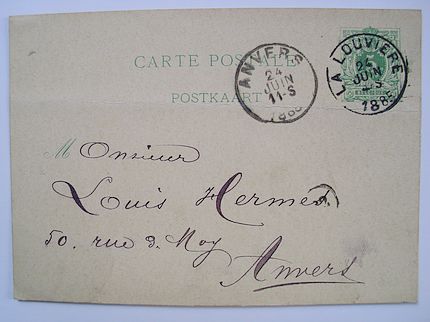 CARTE POSTALE
POSTKAART
ANVERS
24
JUIN
11-S
1885
LA LOUVIÈRE
24
JUIN
1885
5
Monsieur
Louis Hermes
50, rue d. Moy
Anvers